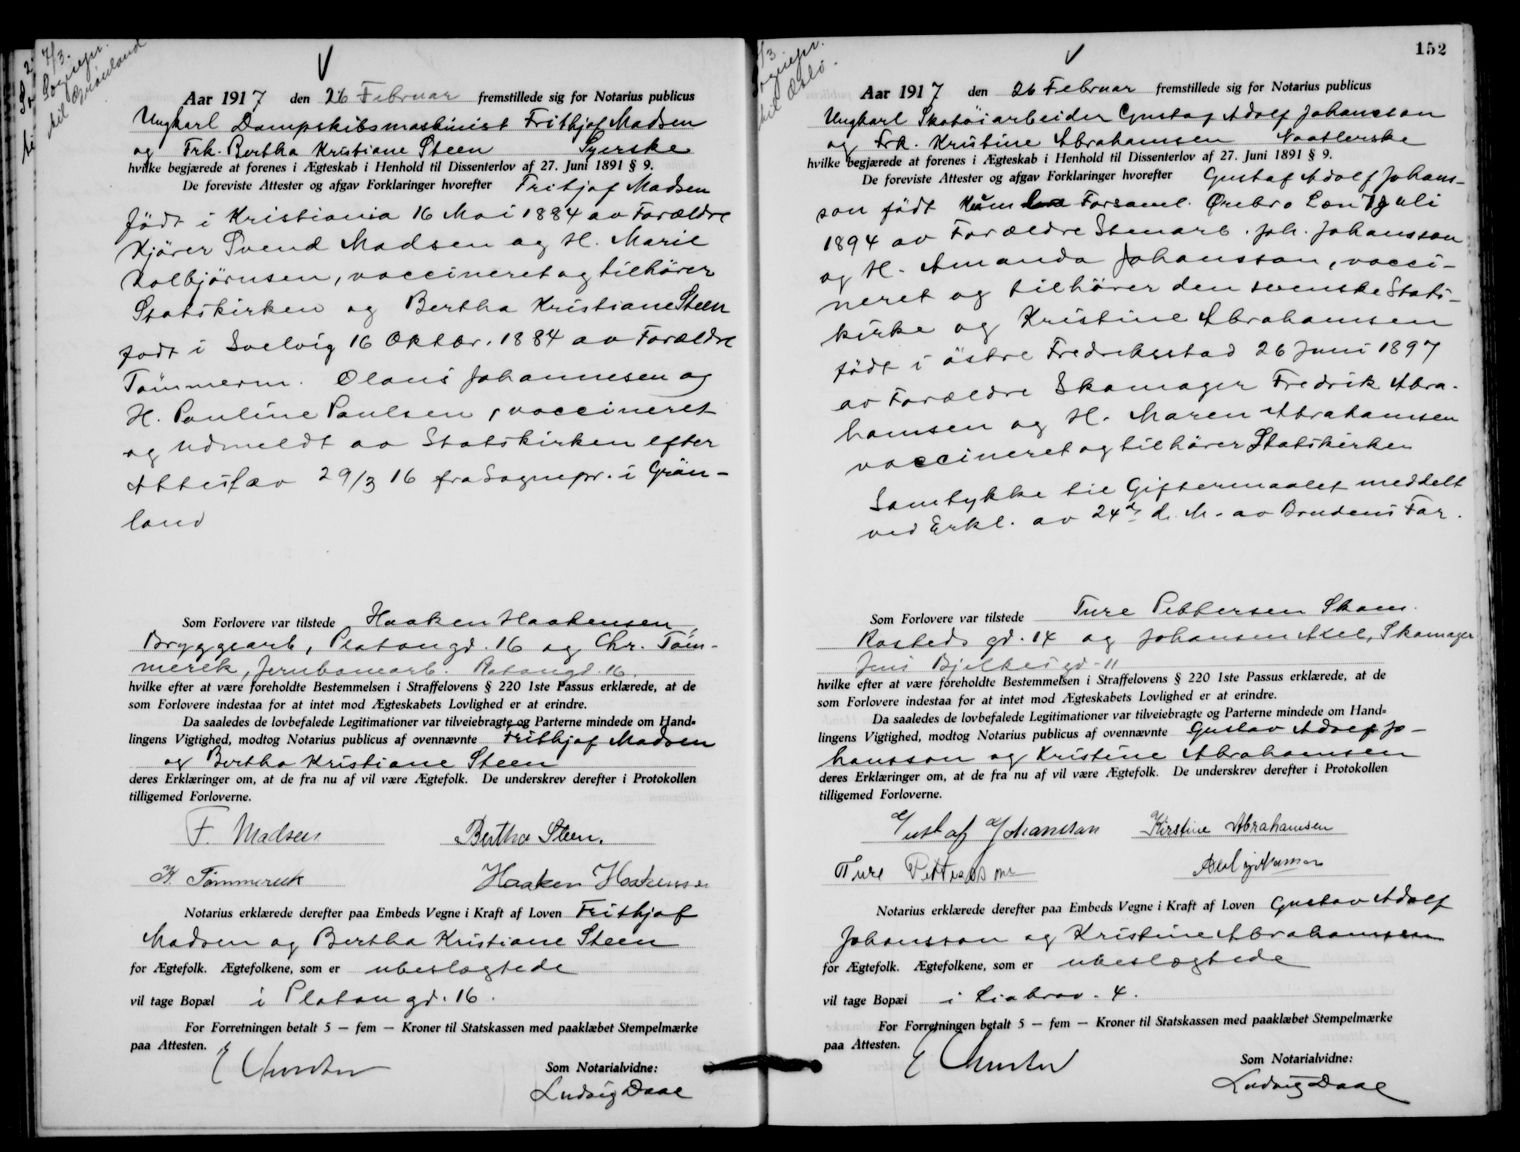 7/3.
Sognepr.
til Grönland
V
Aar 1917 den 26 Februar fremstillede sig for Notarius publicus
Ungkarl Dampskibsmaskinist Frithjof Madsen
og Frk. Bertha Kristiane Steen Syerske
hvilke begjærede at forenes i Ægteskab i Henhold til Dissenterlov af 27. Juni 1891 § 9.
De foreviste Attester og afgav Forklaringer hvorefter Frithjof Madsen
født i Kristiania 16 Mai 1884 av Forældre
Kjörer Svend Madsen og H. Marie
Kolbjörnsen, vaccineret og tilhörer
Statskirken og Bertha Kristiane Steen
født i Svelvig 16 Oktbr. 1884 av Forældre
Tömmerm. Olaus Johannesen og
H. Pauline Paulsen, vaccineret
og udmeldt av Statskirken efter
Attest av 29/3 16 fra Sognepr. i Grön-
land
Som Forlovere var tilstede Haaken Haakensen,
Bryggearb, Platougd. 16 og Chr. Töm-
merek, Jernbanearb. Platougd. 16.
hvilke efter at være foreholdte Bestemmelsen i Straffelovens § 220 1ste Passus erklærede, at de
som Forlovere indestaa for at intet mod Ægteskabets Lovlighed er at erindre.
Da saaledes de lovbefalede Legitimationer var tilveiebragte og Parterne mindede om Hand-
lingens Vigtighed, modtog Notarius publicus af ovennævnte Frithjof Madsen
og Bertha Kristiane Steen
deres Erklæringer om, at de fra nu af vil være Ægtefolk. De underskrev derefter i Protokollen
tilligemed Forloverne.
F. Madsen Bertha Steen.
K. Tömmerek Haaken Haakensen
Notarius erklærede derefter paa Embeds Vegne i Kraft af Loven Frithjof
Madsen og Bertha Kristiane Steen
for Ægtefolk. Ægtefolkene, som er ubeslægtede
vil tage Bopæl i Platougd. 16.
For Forretningen betalt 5 — fem — Kroner til Statskassen med paaklæbet Stempelmærke
paa Attesten.
Som Notarialvidne:
Ludvig Daae
152
/3
Sognepr.
til Oslo.
V
Aar 1917 den 26 Februar fremstillede sig for Notarius publicus
Ungkarl Skotöiarbeider Gustaf Adolf Johansson
og Frk. Kristine Abrahamsen Naatlerske
hvilke begjærede at forenes i Ægteskab i Henhold til Dissenterlov af 27. Juni 1891 § 9.
De foreviste Attester og afgav Forklaringer hvorefter Gustaf Adolf Johans-
son født Forsaml. Örebro Læn Juli
1894 av Forældre Stenarb. Joh. Johansson
og H. Amanda Johansson, vacci-
neret og tilhörer den svenske Stats-
kirke og Kristine Abrahamsen
født i östre Fredriksstad 26 Juni 1897
av Forældre Skomager Fredrik Abra-
hamsen og H. Maren Abrahamsen
vaccineret og tilhörer Statskirken
Samtykke til Giftermaalet meddelt
ved Erkl. av 24de d. M. av Brudens Far.
Som Forlovere var tilstede Ture Pettersen Skom.
Rosteds gd. 14 og Johansen Axel, Skomager
Jens Bjelkes gd. 11
hvilke efter at være foreholdte Bestemmelsen i Straffelovens § 220 1ste Passus erklærede, at de
som Forlovere indestaa for at intet mod Ægteskabets Lovlighed er at erindre.
Da saaledes de lovbefalede Legitimationer var tilveiebragte og Parterne mindede om Hand-
lingens Vigtighed, modtog Notarius publicus af ovennævnte Gustav Adolf Jo-
hansson og Kristine Abrahamsen
deres Erklæringer om, at de fra nu af vil være Ægtefolk. De underskrev derefter i Protokollen
tilligemed Forloverne.
Gustaf Johansson Kirstine Abrahamsen
Ture Pettersson
Notarius erklærede derefter paa Embeds Vegne i Kraft af Loven Gustav Adolf
Johansson og Kristine Abrahamsen
for Ægtefolk. Ægtefolkene, som er ubeslægtede
vil tage Bopæl i Liabrov. 4.
For Forretningen betalt 5 — fem — Kroner til Statskassen med paaklæbet Stempelmærke
paa Attesten.
Som Notarialvidne:
Ludvig Daae